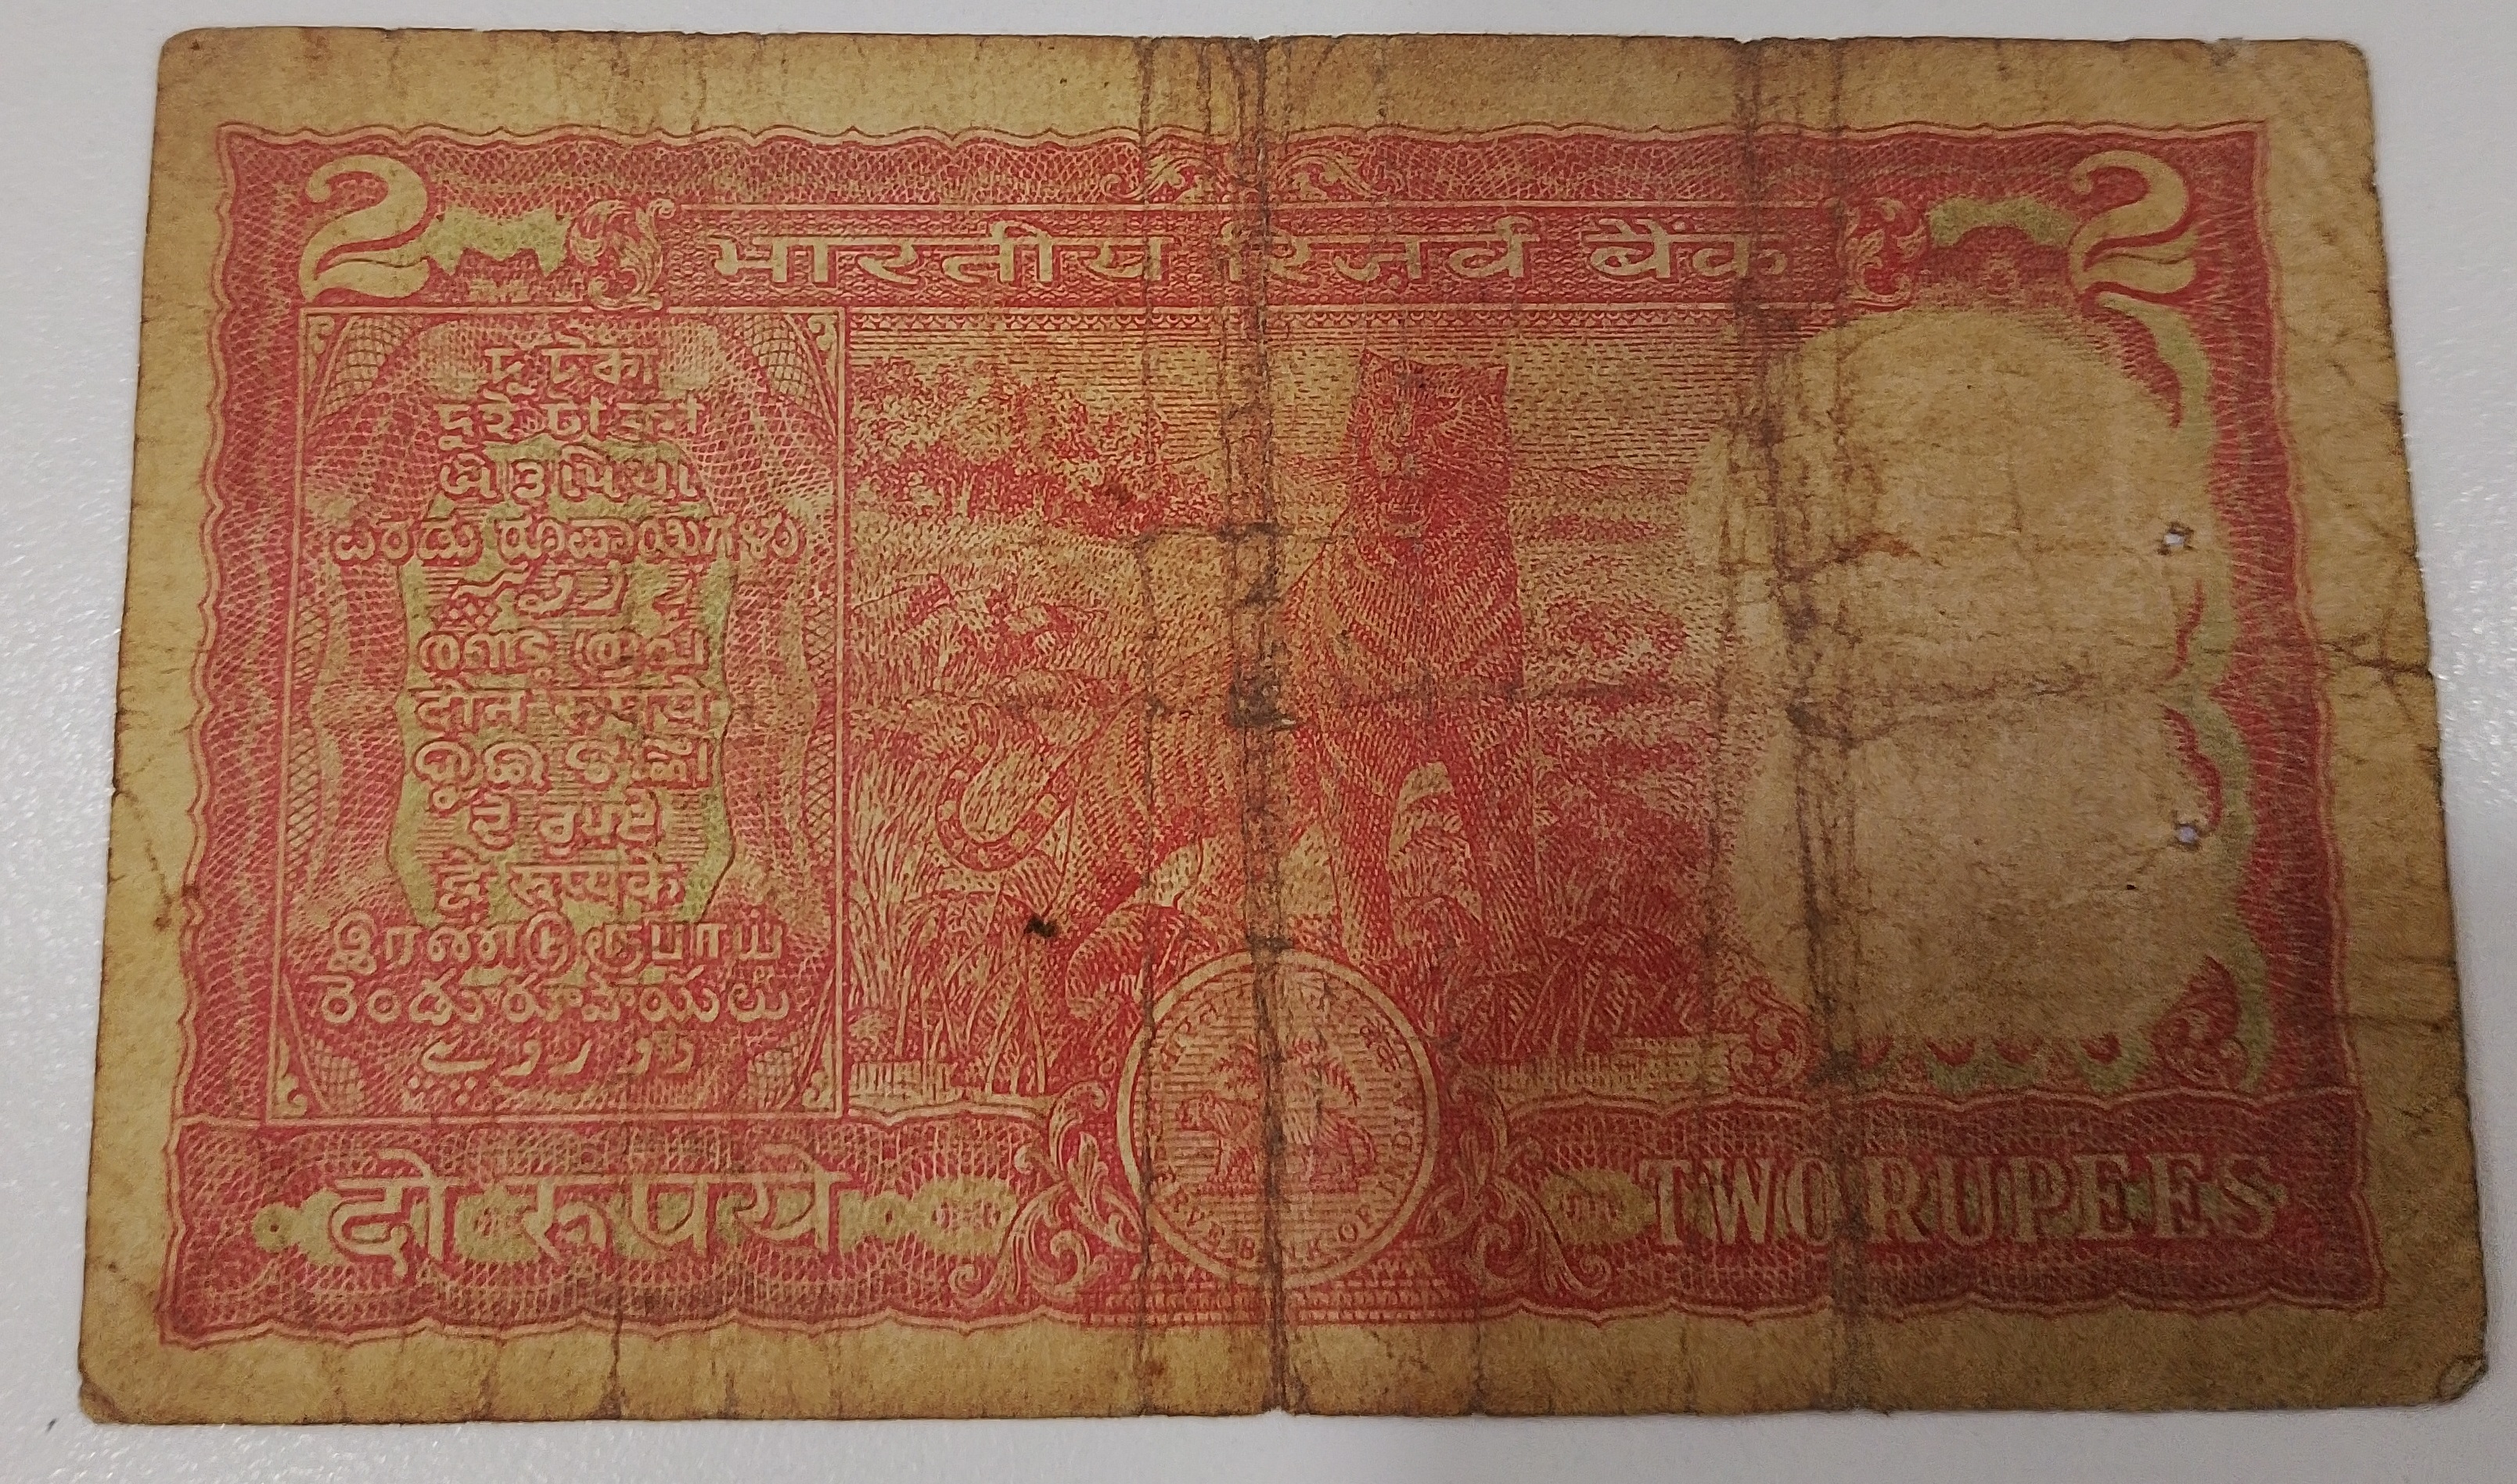 2 भारतीय रिज़र्व बैंक 2
দু টকা
দুই টাকা
બે રૂપિયા
ಎರಡು ರೂಪಾಯಿಗಳು
രണ്ടു രൂപ
दोन रुपये
ଦୁଇ ଟଙ୍କା
ਦੋ ਰੁਪਏ
द्वे रूप्यके
இரண்டு ரூபாய்
రెండు రూపాయలు
دو روپے
दो रूपये
TWO RUPEES
BANK OF INDIA